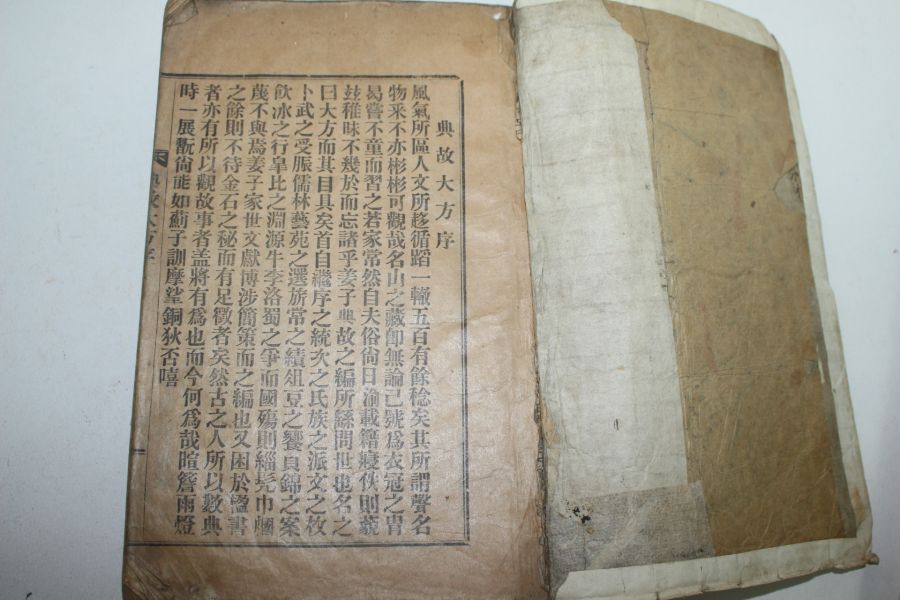 典故大方序
風氣所區人文所趍循蹈一轍五百有餘稔矣其所謂聲名
物采不亦彬彬可觀哉名山之藏卽無論已號爲衣冠之胄
曷嘗不童而習之若家常然自夫俗尙日渝載籍寢佚則藐
玆稚昧不幾於而忘諸乎姜子典故之編所繇問世也名之
曰大方而其目具矣首自繼序之統次之氏族之派文之枚
卜武之受脤儒林藝苑之選旂常之績俎豆之饗貝錦之案
飮冰之行皐比之淵源牛李洛蜀之爭而國殤則緇髡巾幗
蔑不與焉姜子家世文獻博涉簡策而之編也又困於楹書
之餘則不待金石之秘而有足徵者矣然古之人所以數典
者亦有所以觀故事者盖將有爲也而今何爲哉暄簷雨燈
時一展翫尙能如薊子訓摩挲銅狄否嘻
典故大方序